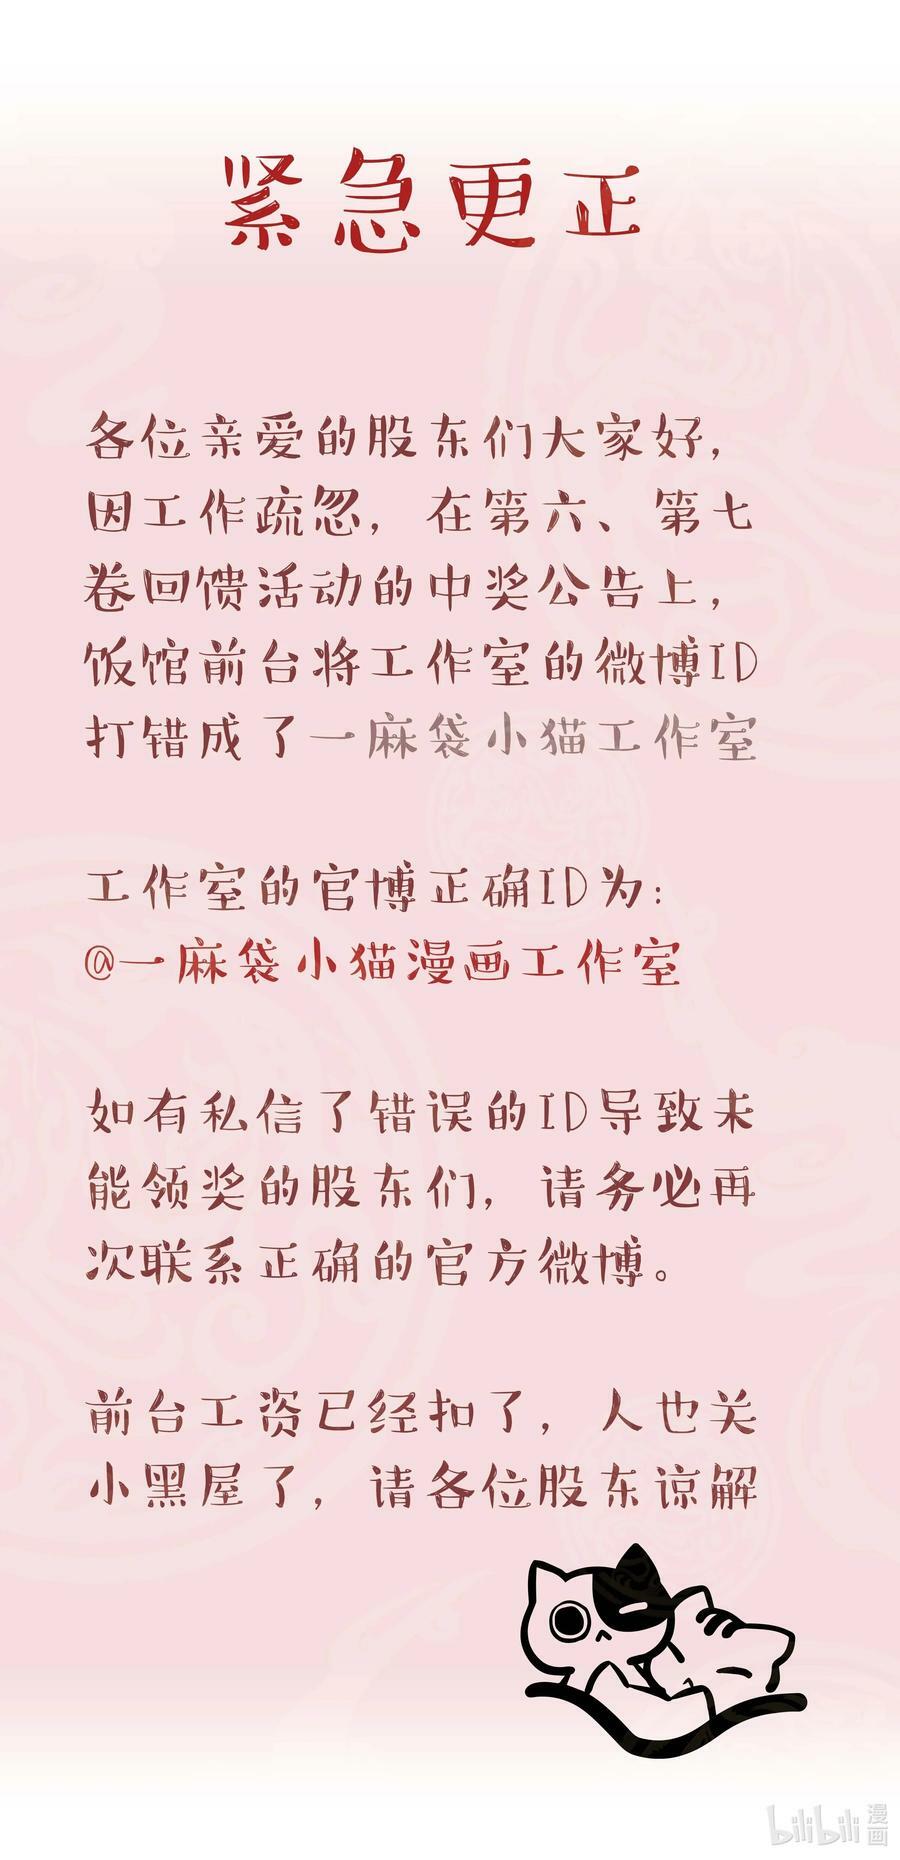 紧急更正
各位亲爱的股东们大家好，
因工作疏忽，在第六、第七
卷回馈活动的中奖公告上，
饭馆前台将工作室的微博ID
打错成了一麻袋小猫工作室
工作室的官博正确ID为：
@一麻袋小猫漫画工作室
如有私信了错误的ID导致未
能领奖的股东们，请务必再
次联系正确的官方微博。
前台工资已经扣了，人也关
小黑屋了，请各位股东谅解
bilibili 漫画